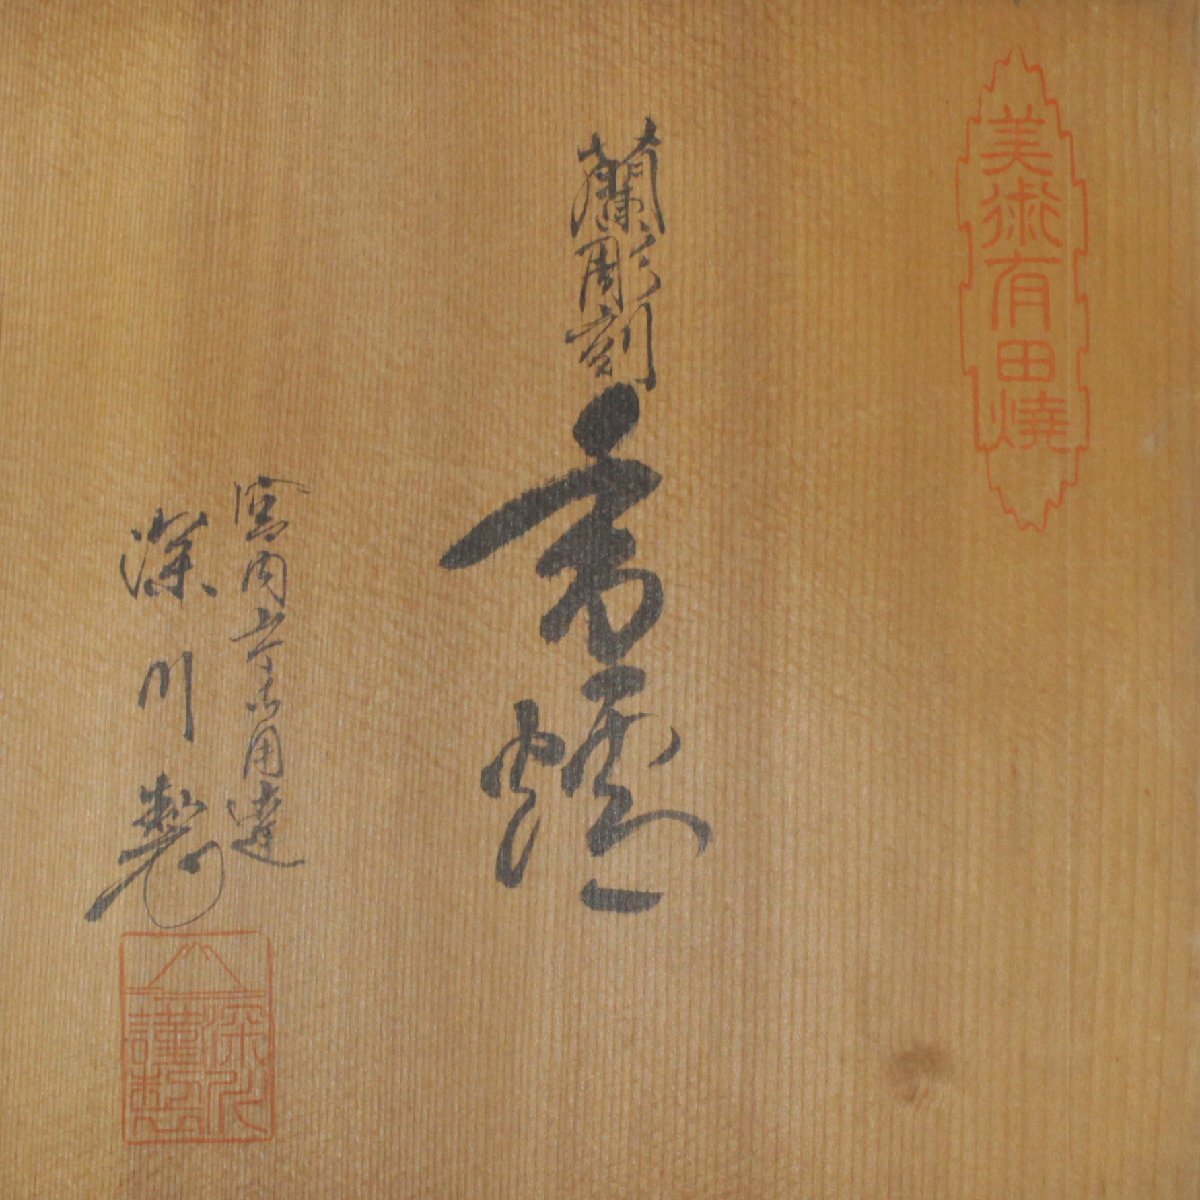 美術有田燒
蘭彫刻
香爐
宮内庁御用達
深川製
深川
謹製